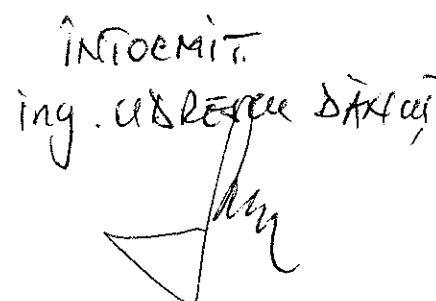 ÎNTOCMIT.
ing. UDRESCU DĂNUȚ